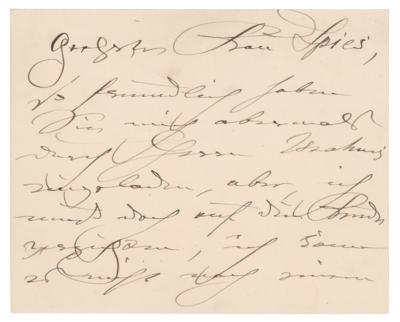 Geehrte Frau Spies,
So freundlich haben
Sie mich abermals
durch Herrn
eingeladen, aber, ich
muß doch auf die Freude
verzichten, ich kann
es nicht noch einen